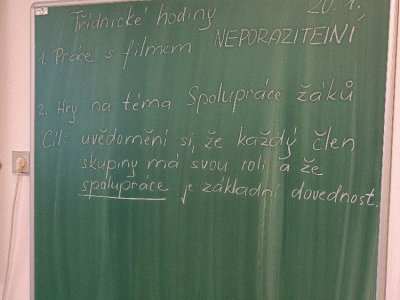 Třídnické hodiny 20. 1.
1. Práce s filmem NEPORAZITELNÍ
2. Hry na téma Spolupráce žáků
Cíl: uvědomění si, že každý člen
skupiny má svou roli a že
spolupráce je základní dovednost.